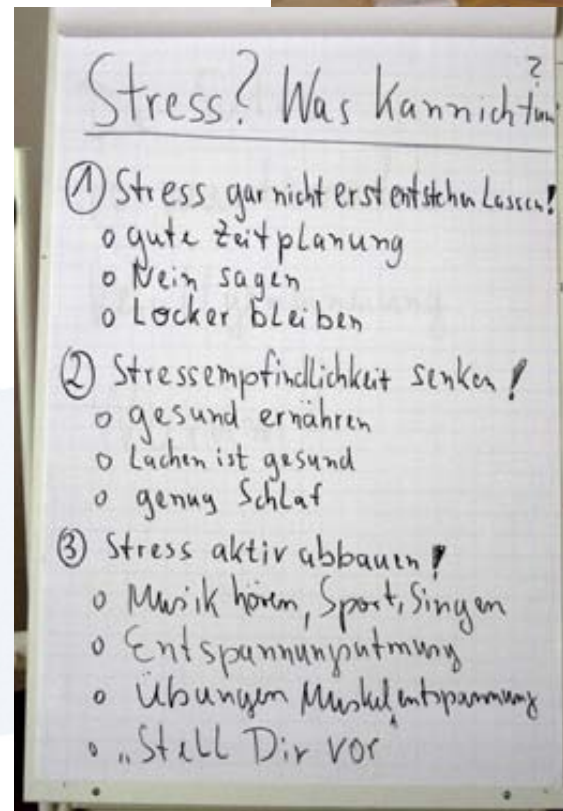 Stress? Was kann ich tun?
① Stress gar nicht erst entstehen lassen!
o gute Zeitplanung
o Nein sagen
o Locker bleiben
② Stressempfindlichkeit senken!
o gesund ernähren
o Lachen ist gesund
o genug Schlaf
③ Stress aktiv abbauen!
o Musik hören, Sport, Singen
o Entspannungsatmung
o Übungen Muskelentspannung
o „Stell Dir vor